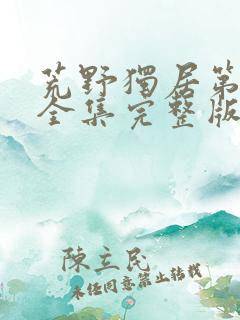 荒野獨居第
全集完整版
陳立民
未经同意禁止转载